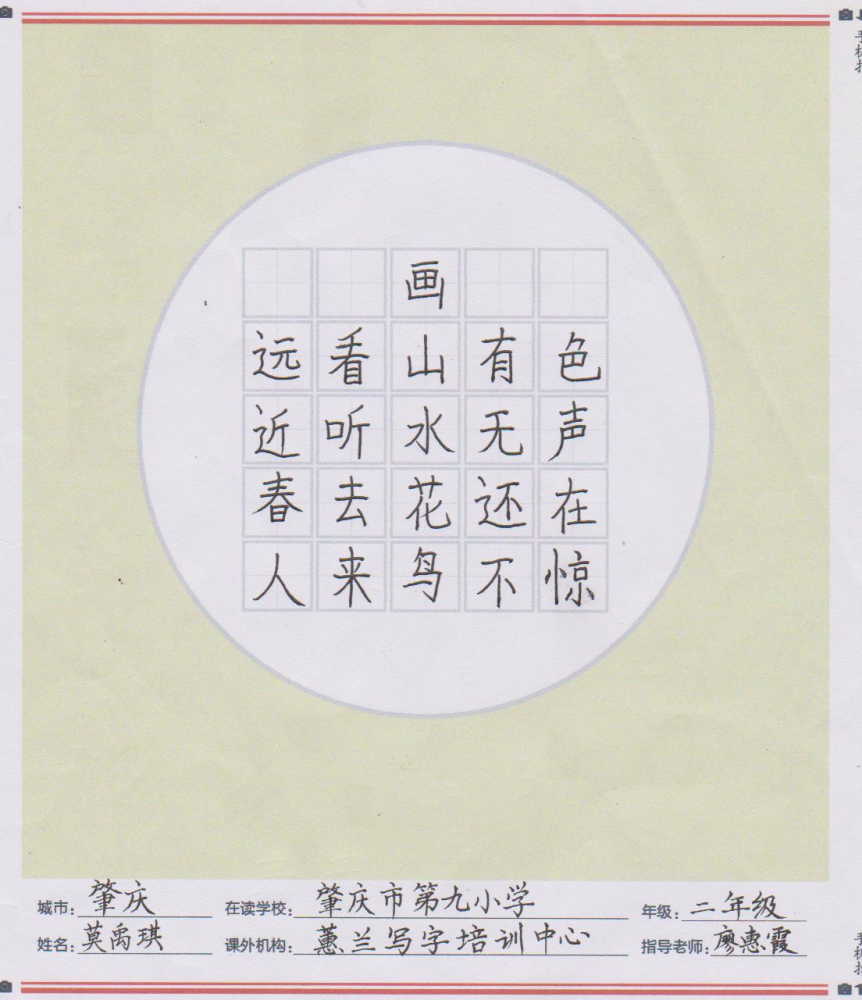 画
远看山有色
近听水无声
春去花还在
人来鸟不惊
城市: 肇庆 在读学校: 肇庆市第九小学 年级: 二年级
姓名: 莫禹琪 课外机构: 蕙兰写字培训中心 指导老师: 廖惠霞